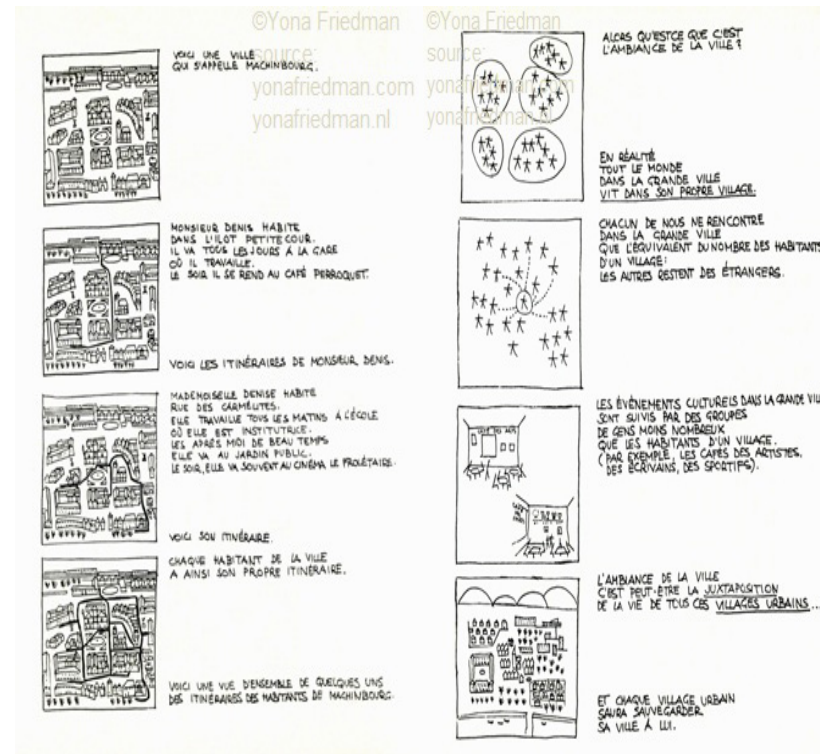 ©Yona Friedman
source:
yonafriedman.com
yonafriedman.nl
©Yona Friedman
source:
yonafriedman.com
yonafriedman.nl
VOICI UNE VILLE
QUI S'APPELLE MACHINBOURG.
MONSIEUR DENIS HABITE
DANS L'ILOT PETITE COUR.
IL VA TOUS LES JOURS À LA GARE
OÙ IL TRAVAILLE.
LE SOIR IL SE REND AU CAFÉ PERROQUET.
VOICI LES ITINÉRAIRES DE MONSIEUR DENIS.
MADEMOISELLE DENISE HABITE
RUE DES CARMÉLITES.
ELLE TRAVAILLE TOUS LES MATINS À L'ÉCOLE
OÙ ELLE EST INSTITUTRICE.
LES APRÈS MIDI DE BEAU TEMPS
ELLE VA AU JARDIN PUBLIC.
LE SOIR, ELLE VA SOUVENT AU CINÉMA LE PROLÉTAIRE.
VOICI SON ITINÉRAIRE.
CHAQUE HABITANT DE LA VILLE
A AINSI SON PROPRE ITINÉRAIRE.
VOICI UNE VUE D'ENSEMBLE DE QUELQUES UNS
DES ITINÉRAIRES DES HABITANTS DE MACHINBOURG.
ALORS QU'ESTCE QUE C'EST
L'AMBIANCE DE LA VILLE?
EN RÉALITÉ
TOUT LE MONDE
DANS LA GRANDE VILLE
VIT DANS SON PROPRE VILLAGE:
CHACUN DE NOUS NE RENCONTRE
DANS LA GRANDE VILLE
QUE L'ÉQUIVALENT DU NOMBRE DES HABITANTS
D'UN VILLAGE:
LES AUTRES RESTENT DES ÉTRANGERS.
LES ÉVÉNEMENTS CULTURELS DANS LA GRANDE VIL
SONT SUIVIS PAR DES GROUPES
DE GENS MOINS NOMBREUX
QUE LES HABITANTS D'UN VILLAGE.
(PAR EXEMPLE, LES CAFÉS DES ARTISTES,
DES ÉCRIVAINS, DES SPORTIFS).
CAFÉ DES ARTS
L'AMBIANCE DE LA VILLE
C'EST PEUT-ÊTRE LA JUXTAPOSITION
DE LA VIE DE TOUS CES VILLAGES URBAINS...
ET CHAQUE VILLAGE URBAIN
SAURA SAUVEGARDER
SA VILLE À LUI.